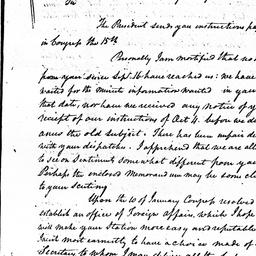 Sir
The President sends you instructions pa
in Congress the 15th
Personally I am mortified that no
from you since Sept. 16 have reached us: we have
waited for the minute information wanted in you
that date, nor have we received any notice of y
receipt of our instructions of Aug 4. before we d
anew the old subject. There has been unfair de
with your dispatches. I apprehend that we are all
to see on Sentiments somewhat different from you
Perhaps the enclosed Memorandum may be some clu
to your Scruting
Upon the 10 of January Congress resolved
establish an office of Foreign affairs, which I hope
will make your Station more easy and reputable
I wait most earnestly to have a choice made of
Secretary to whom I may deliver all the